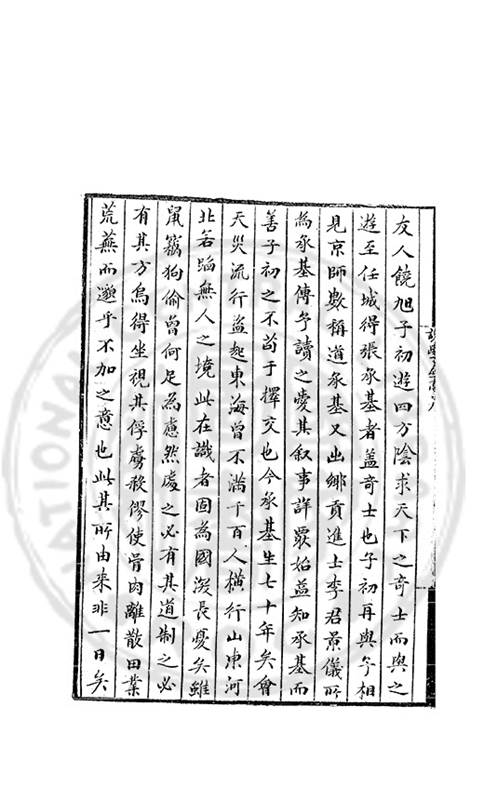 友人饒旭子初遊四方陰求天下之奇士而與之
遊至任城得張承基者蓋奇士也子初再與予相
見京師數稱道承基又出鄉貢進士李君景儀所
為承基傳予讀之愛其叙事詳覈始益知承基而
善子初之不苟于擇交也今承基生七十年矣會
天災流行盜起東海曾不滿千百人橫行山東河
北若蹈無人之境此在識者固為國深長憂矣雖
鼠竊狗偷曾何足為慮然處之必有其道制之必
有其方烏得坐視其俘虜殺僇使骨肉離散田業
荒蕪而邈乎不加之意也此其所由來非一日矣